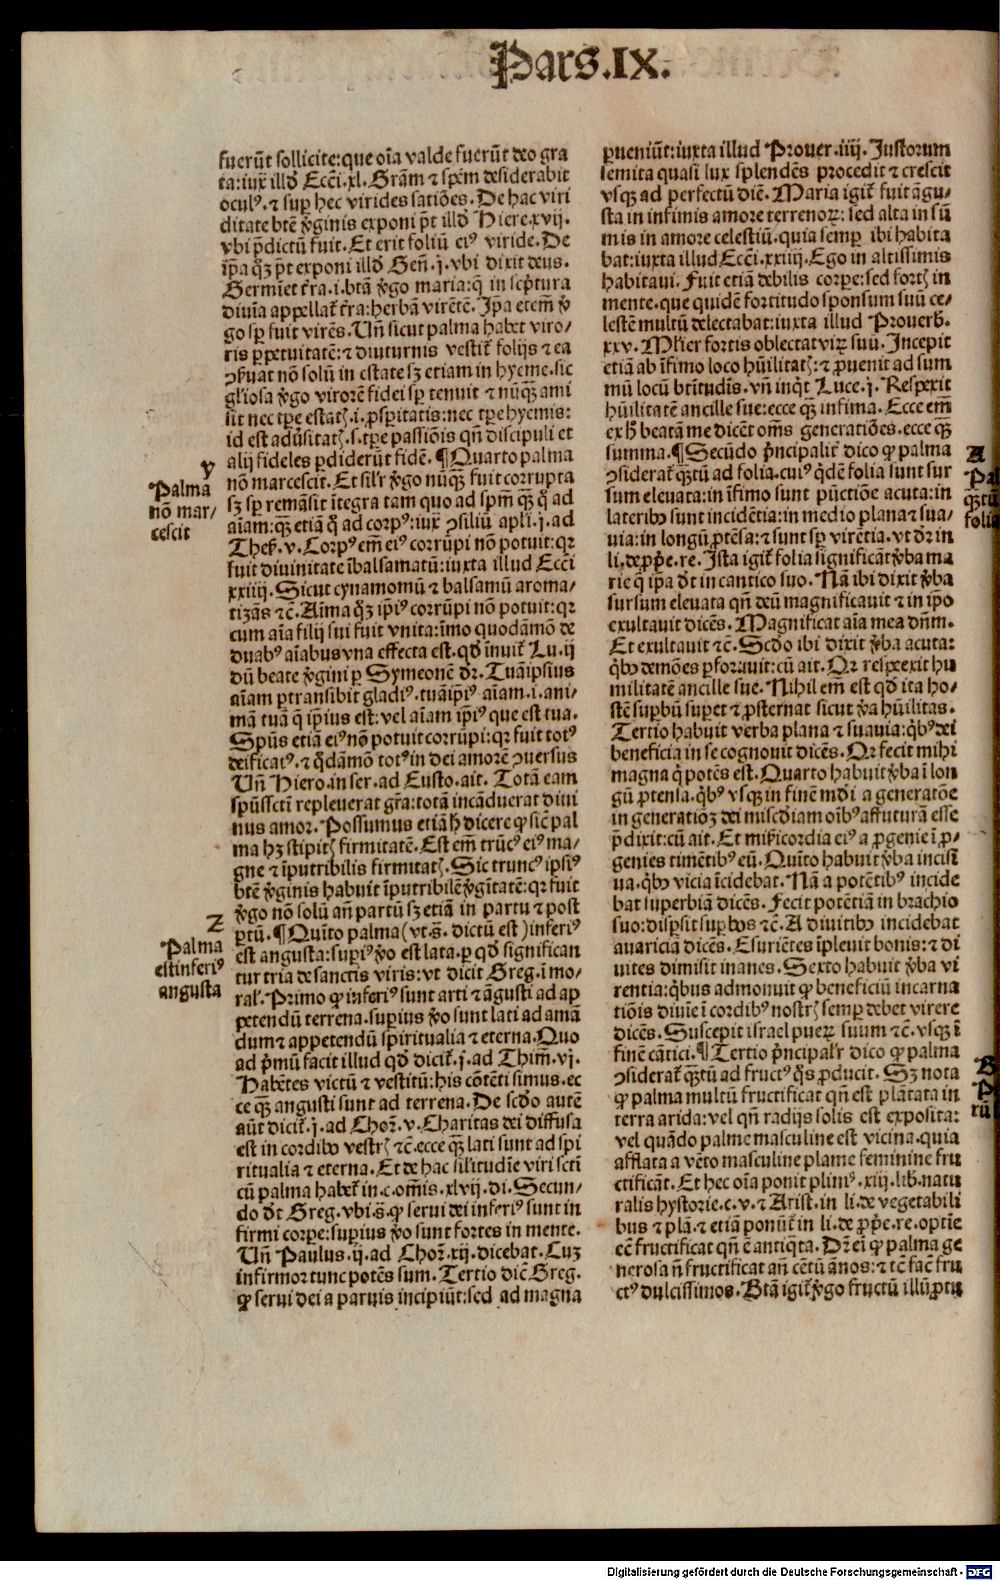 Pars.IX.
fuerūt sollicite:que oīa valde fuerūt deo gra
ta:iux̄ illđ Ecci.xl. Grām ⁊ spēm desiderabit
ocul⁹.⁊ suꝑ hec virides satiões. De hac viri
ditate btē v̄ginis exponi pōt illđ Hiere.xvij.
vbi p̄dictū fuit. Et erit foliū ei⁹ viride. De
ip̄a qꝫ pōt exponi illđ Geñ.j. vbi dixit deus.
Germiet t̄ra.i.btā v̄go maria:q̄ in scp̄tura
diuīa appellat̄ t̄ra:herbā virētē. Ip̄a etem̄ v̄
go sꝑ fuit virēs. Uñ sicut palma habet viro/
ris ꝑpetuitatē:⁊ diuturnis vestit̄ folijs ⁊ ea
ꝯẜuat nō solū in estate sꝫ etiam in hyeme.sic
gl̄iosa v̄go virorē fidei sꝑ tenuit ⁊ nūqꝫ ami
sit nec tꝑe estatꝭ.i.ꝓsꝑitatis:nec tꝑe hyemis:
id est aduersitatꝭ.s.tꝑe passiōis qñ discipuli et
alij fideles ꝑdiderūt fidē. ¶Quarto palma
nō marcescit. Et sil'r v̄go nūqꝫ fuit corrupta
sꝫ sꝑ remāsit īntegra tam quo ad spm̄ qꝫ q̊ ad
aīam:qꝫ etiā q̊ ad corp⁹:iux̄ ꝯsiliū apli.j.ad
Theẜ.v. Corp⁹ em̄ ei⁹ corrūpi nō potuit:qꝛ
fuit diuinitate ībalsamatū:iuxta illud Ecci
xxiiij. Sicut cynamomū ⁊ balsamū aroma/
tizās ⁊c̄. Aīma qꝫ ip̄i⁹ corrūpi nō potuit:qꝛ
cum aīa filij sui fuit vnita:īmo quodāmō de
duab⁹ aīabus vna effecta est.qđ īnuit̄ Lu.ij
dū beate v̄gini ꝑ Symeonē dr̄. Tuāipsius
aīam ꝑtransibit gladi⁹.tuāip̄i⁹ aīam.i.ani/
mā tuā q̄ ip̄ius est:vel aīam ip̄i⁹ que est tua.
Spūs etiā ei⁹ nō potuit corrūpi:qꝛ fuit tot⁹
deificat⁹.⁊ q̊dāmō tot⁹ in dei amorē ꝯuersus
Uñ Hiero.in ser.ad Eusto.ait. Totā eam
spūssctī repleuerat gr̄a:totā incāduerat diui
nus amor. Possumus etiā h̄ dicere ꝙ sic̄ pal
ma hꝫ stipitꝭ firmitatē. Est em̄ trūc⁹ ei⁹ ma/
gne ⁊ īputribilis firmitatꝭ. Sic trunc⁹ ipsi⁹
btē v̄ginis habuit īputribilē v̄gītatē:qꝛ fuit
v̄go nō solū añ partū sꝫ etiā in partu ⁊ post
ꝑtū. ¶Quīto palma (vt.s̄. dictū est) inferi⁹
est angusta:suꝑi⁹ v̄o est lata.ꝑ qđ significan
tur tria de sanctis viris:vt dicit Greg.ī mo/
ral'. Primo ꝙ inferi⁹ sunt arti ⁊ āgusti ad ap
petendū terrena.superius v̄o sunt lati ad amā
dum ⁊ appetendū spiritualia ⁊ eterna. Quo
ad p̄mū facit illud qđ dicit̄.j.ad Thim̄.vj.
Habētes victū ⁊ vestitū:his cōtēti simus.ec
ce qꝫ angusti sunt ad terrena. De scđo autē
aūt dicit̄.j.ad Choꝛ̄.v. Charitas dei diffusa
est in cordibꝰ vestrꝭ ⁊c̄.ecce qꝫ lati sunt ad spi
ritualia ⁊ eterna. Et de hac sil̄itudīe viri sctī
cū palma habet̄ in.c.om̄is.xlvij.di. Secun/
do dr̄t Greg.vbi.s̄.ꝙ serui dei inferi⁹ sunt in
firmi corpe:superius v̄o sunt fortes in mente.
Uñ Paulus.ij.ad Choꝛ̄.xij.dicebat. Cuꝫ
infirmor tunc potēs sum. Tertio dic̄ Greg.
ꝙ serui dei a paruis incipiūt:sed ad magna
y
Palma
nō mar/
cescit
z
Palma
est inferi⁹
angusta
ꝑueniūt:iuxta illud Prouer.iiij. Iustorum
semita quasi lux splendēs procedit ⁊ crescit
vsqꝫ ad perfectū diē. Maria igit̄ fuit āgu/
sta in infimis amore terrenoꝝ: sed alta in sū
mis in amore celestiū.quia semꝑ ibi habita
bat:iuxta illud Ecci.xxiiij. Ego in altissimis
habitaui. Fuit etiā debilis corpe:sed fortꝭ in
mente.que quidē fortitudo sponsum suū ce/
lestē multū delectabat:iuxta illud Prouerb̄.
xxv. Ml̄ier fortis oblectat viꝝ suū. Incepit
etiā ab īfimo loco hūilitatꝭ:⁊ ꝑuenit ad sum
mū locū btītudīs.vñ inq̄t Luce.j. Respexit
hūilitatē ancille sue:ecce qꝫ infima. Ecce em̄
ex h̄ beatā me dicēt om̄s generatiões.ecce qꝫ
summa. ¶Secūdo p̄ncipalit̄ dico ꝙ palma
ꝯsiderat̄ qꝫtū ad folia.cui⁹ q̄dē folia sunt sur
sum eleuata:in īfimo sunt pūctiōe acuta:in
lateribꝰ sunt incidētia:in medio plana ⁊ sua/
uia:in longū ꝓtēsa:⁊ sunt sꝑ virētia.vt dr̄ in
li.de ꝓp̄e.re. Ista igit̄ folia significāt v̄ba ma
rie q̄ ip̄a dr̄t in cantico suo. Nā ibi dixit v̄ba
sursum eleuata qñ deū magnificauit ⁊ in ip̄o
exultauit dicēs. Magnificat aīa mea dñm.
Et exultauit ⁊c̄. Scđo ibi dixit v̄ba acuta:
q̄bꝰ demōes ꝑforauit:cū ait. Qꝛ respexit hu
militatē ancille sue. Nihil em̄ est qđ ita ho/
stē suꝑbū suꝑet ⁊ ꝓsternat sicut v̄a hūilitas.
Tertio habuit verba plana ⁊ suauia:q̄b⁹ dei
beneficia in se cognouit dicēs. Qꝛ fecit mihi
magna q̄ potēs est. Quarto habuit v̄ba ī lon
gū ꝓtensa.q̄b⁹ vsqꝫ in finē mūdi a generatōe
in generatiōꝫ dei misc̄diam oīb⁹ affuturā esse
p̄dixit:cū ait. Et mīẜicordia ei⁹ a ꝓgenie ī ꝓ/
genies timētib⁹ eū. Quīto habuit v̄ba incisi
ua.q̄bꝰ vicia īcidebat. Nā a potētib⁹ incide
bat suꝑbiā dicēs. Fecit potētiā in brachio
suo:disꝑsit suꝑbos ⁊c̄. A diuitibꝰ incidebat
auariciā dicēs. Esuriētes īpleuit bonis:⁊ di
uites dimisit inanes. Sexto habuit v̄ba vi
rentia:q̄bus admonuit ꝙ beneficiū incarna
tiōis diuīe ī cordib⁹ nostrꝭ semꝑ debet virere
dicēs. Suscepit israel pueꝝ suum ⁊c̄. vsqꝫ ī
finē cātici. ¶Tertio p̄ncipal'r dico ꝙ palma
ꝯsiderat̄ qꝫtū ad fruct⁹ q̊s ꝓducit. Sꝫ nota
ꝙ palma multū fructificat qñ est plātata in
terra arida:vel qñ radijs solis est exposita:
vel quādo palme masculine est vicina.quia
afflata a vēto masculine plame feminine fru
ctificāt. Et hec oīa ponit plini⁹.xiij.lib.natu
ralis hystorie.c.v.⁊ Arist̄.in li.de vegetabili
bus ⁊ plā.⁊ etiā ponūt̄ in li.de ꝓp̄e.re.optīe
eē fructificat qñ ē antiq̄ta. Dr̄ ei ꝙ palma ge
nerosa ñ fructificat añ cētū ānos:⁊ tc̄ fac̄ fru
ct⁹ dulcissimos. Btā igit̄ v̄go fructū illū ꝓtu
A
Pal
qꝫtū
folia
B
P
tū
Digitalisierung gefördert durch die Deutsche Forschungsgemeinschaft - DFG